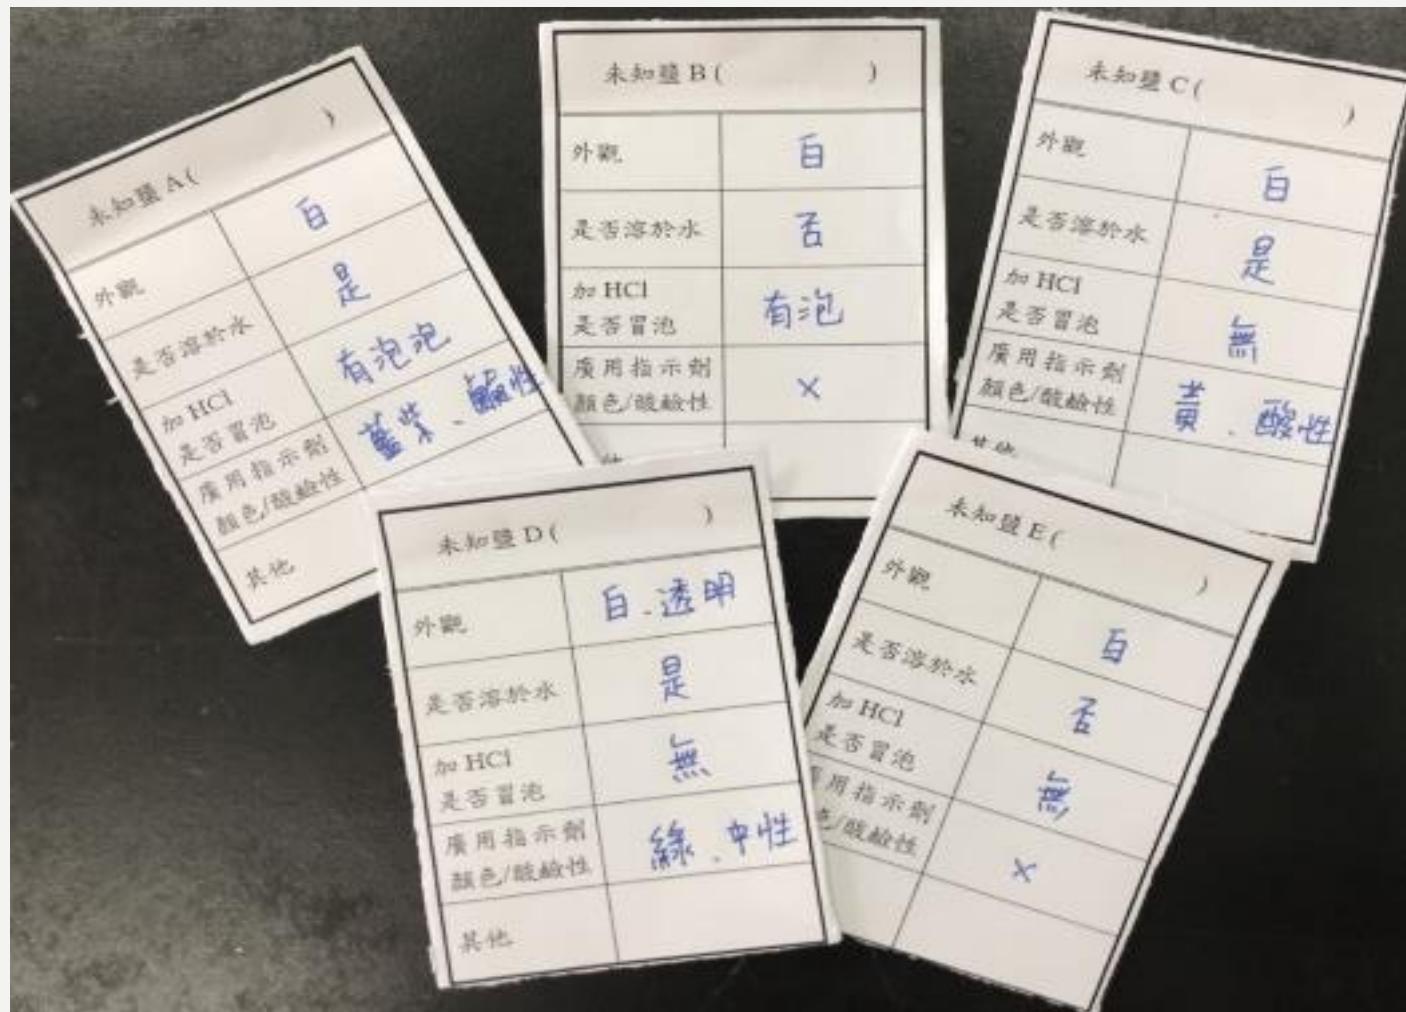 未知鹽 A (          )
外觀 白
是否溶於水 是
加 HCl
是否冒泡 有泡泡
廣用指示劑
顏色/酸鹼性 藍紫、鹼性
其他
未知鹽 B (          )
外觀 白
是否溶於水 否
加 HCl
是否冒泡 有泡
廣用指示劑
顏色/酸鹼性 ×
未知鹽 C (          )
外觀 白
是否溶於水 是
加 HCl
是否冒泡 無
廣用指示劑
顏色/酸鹼性 黃、酸性
其他
未知鹽 D (          )
外觀 白、透明
是否溶於水 是
加 HCl
是否冒泡 無
廣用指示劑
顏色/酸鹼性 綠、中性
其他
未知鹽 E (          )
外觀 白
是否溶於水 否
加 HCl
是否冒泡 無
用指示劑
色/酸鹼性 ×